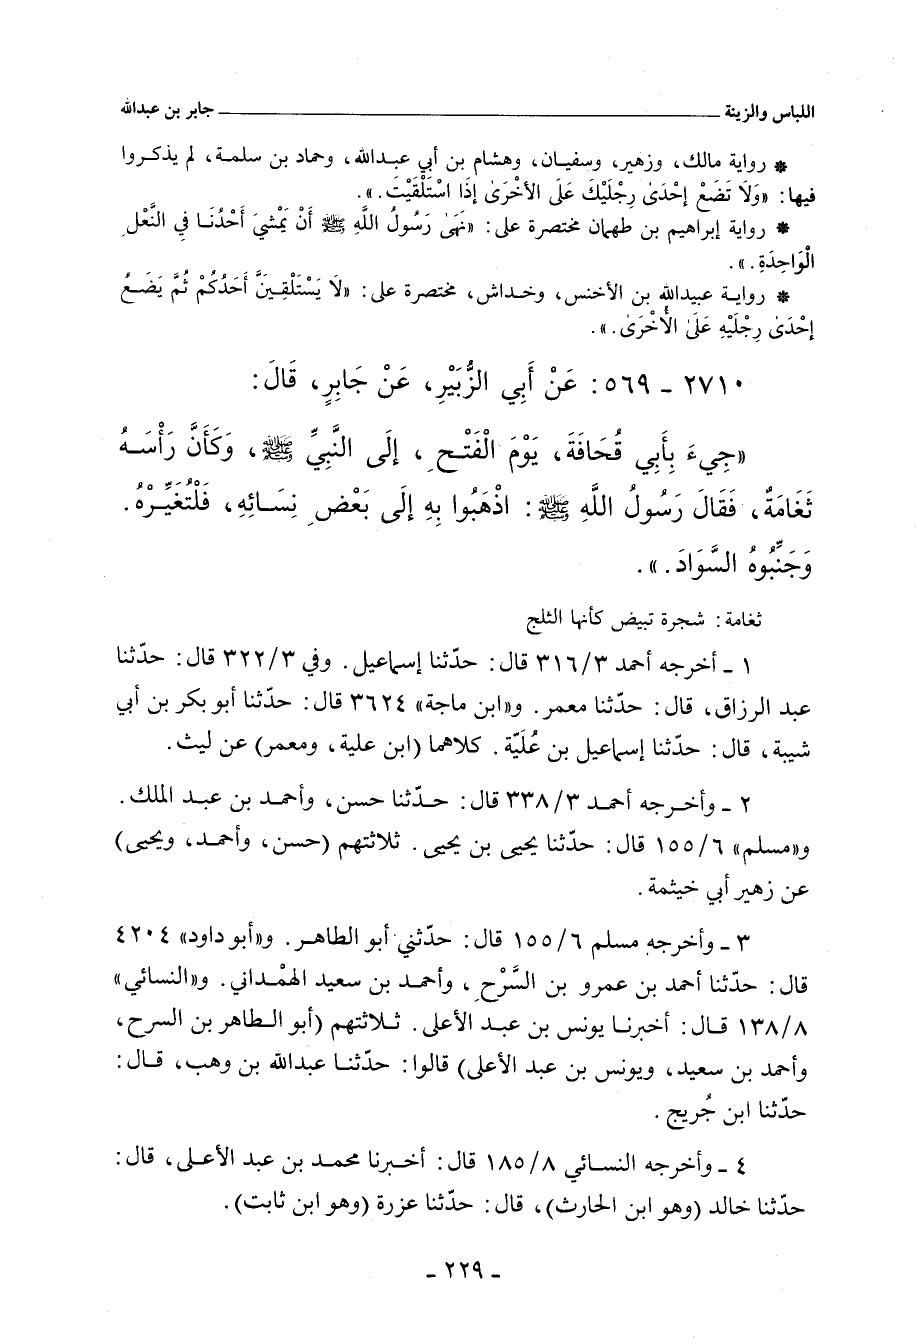 اللباس والزينة ــــــــــــــــــــ جابر بن عبدالله
* رواية مالك، وزهير، وسفيان، وهشام بن أبي عبدالله، وحماد بن سلمة، لم يذكروا
فيها: «وَلَا تَضَعْ إِحْدَىٰ رِجْلَيْكَ عَلَىٰ الأُخْرَىٰ إِذَا اسْتَلْقَيْتَ.».
* رواية إبراهيم بن طهمان مختصرة على: «نَهَىٰ رَسُولُ اللَّهِ ﷺ أَنْ يَمْشِيَ أَحْدُنَا فِي النَّعْلِ
الْوَاحِدَةِ.».
* رواية عبيدالله بن الأخنس، وخداش، مختصرة على: «لَا يَسْتَلْقِيَنَّ أَحَدُكُمْ ثُمَّ يَضَعُ
إِحْدَىٰ رِجْلَيْهِ عَلَىٰ الأُخْرَىٰ.».
٢٧١٠ ـ ٥٦٩: عَنْ أَبِي الزُّبَيْرِ، عَنْ جَابِرٍ، قَالَ:
«جِيءَ بِأَبِي قُحَافَةَ، يَوْمَ الْفَتْحِ، إِلَى النَّبِيِّ ﷺ، وَكَأَنَّ رَأْسَهُ
ثَغَامَةٌ، فَقَالَ رَسُولُ اللَّهِ ﷺ: اذْهَبُوا بِهِ إِلَى بَعْضِ نِسَائِهِ، فَلْتُغَيِّرْهُ.
وَجَنِّبُوهُ السَّوَادَ.».
ثغامة: شجرة تبيض كأنها الثلج
١ ـ أخرجه أحمد ٣١٦/٣ قال: حدّثنا إسماعيل. وفي ٣٢٢/٣ قال: حدّثنا
عبد الرزاق، قال: حدّثنا معمر. و«ابن ماجة» ٣٦٢٤ قال: حدّثنا أبو بكر بن أبي
شيبة، قال: حدّثنا إسماعيل بن عُلَيّة. كلاهما (ابن علية، ومعمر) عن ليث.
٢ ـ وأخرجه أحمد ٣٣٨/٣ قال: حدّثنا حسن، وأحمد بن عبد الملك.
و«مسلم» ١٥٥/٦ قال: حدّثنا يحيى بن يحيى. ثلاثتهم (حسن، وأحمد، ويحيى)
عن زهير أبي خيثمة.
٣ ـ وأخرجه مسلم ١٥٥/٦ قال: حدّثني أبو الطاهر. و«أبو داود» ٤٢٠٤
قال: حدّثنا أحمد بن عمرو بن السَّرْحِ، وأحمد بن سعيد الهمْداني. و«النسائي»
١٣٨/٨ قال: أخبرنا يونس بن عبد الأعلى. ثلاثتهم (أبو الطاهر بن السرح،
وأحمد بن سعيد، ويونس بن عبد الأعلى) قالوا: حدّثنا عبدالله بن وهب، قال:
حدّثنا ابن جُريج.
٤ ـ وأخرجه النسائي ١٨٥/٨ قال: أخبرنا محمد بن عبد الأعلى، قال:
حدّثنا خالد (وهو ابن الحارث)، قال: حدّثنا عزرة (وهو ابن ثابت).
ـ ٢٢٩ ـ